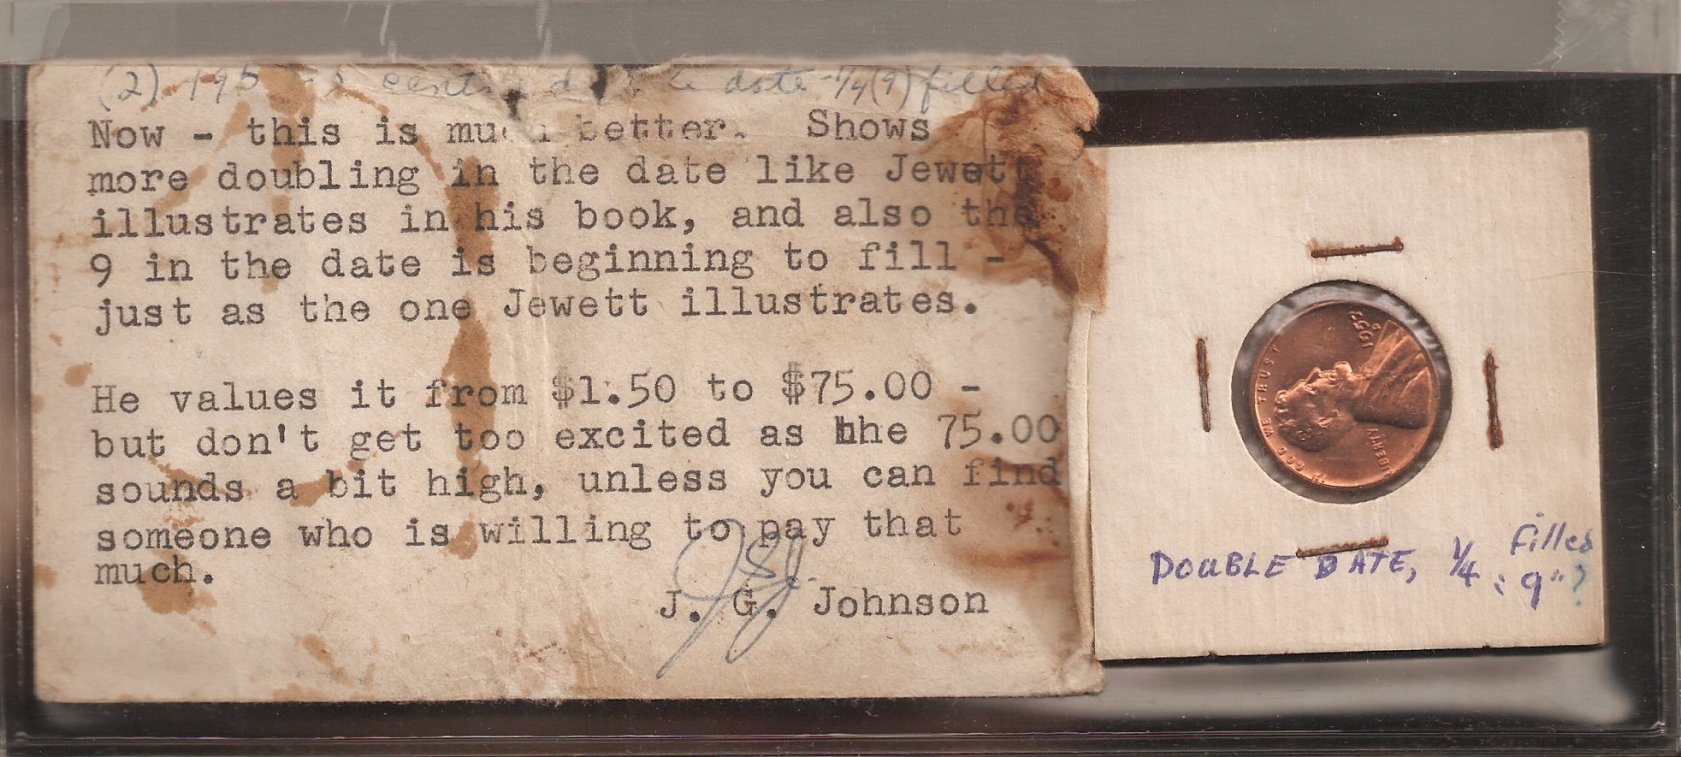 (2) 195 cents date 1/4 (9) filled
Now - this is mu better. Shows
more doubling in the date like Jewett
illustrates in his book, and also the
9 in the date is beginning to fill -
just as the one Jewett illustrates.
He values it from $1.50 to $75.00 -
but don't get too excited as hhe 75.00
sounds a bit high, unless you can find
someone who is willing to pay that
much.
J. G. Johnson
WE TRUST
LIBERTY
DOUBLE DATE, 1/4 filled
"9"?